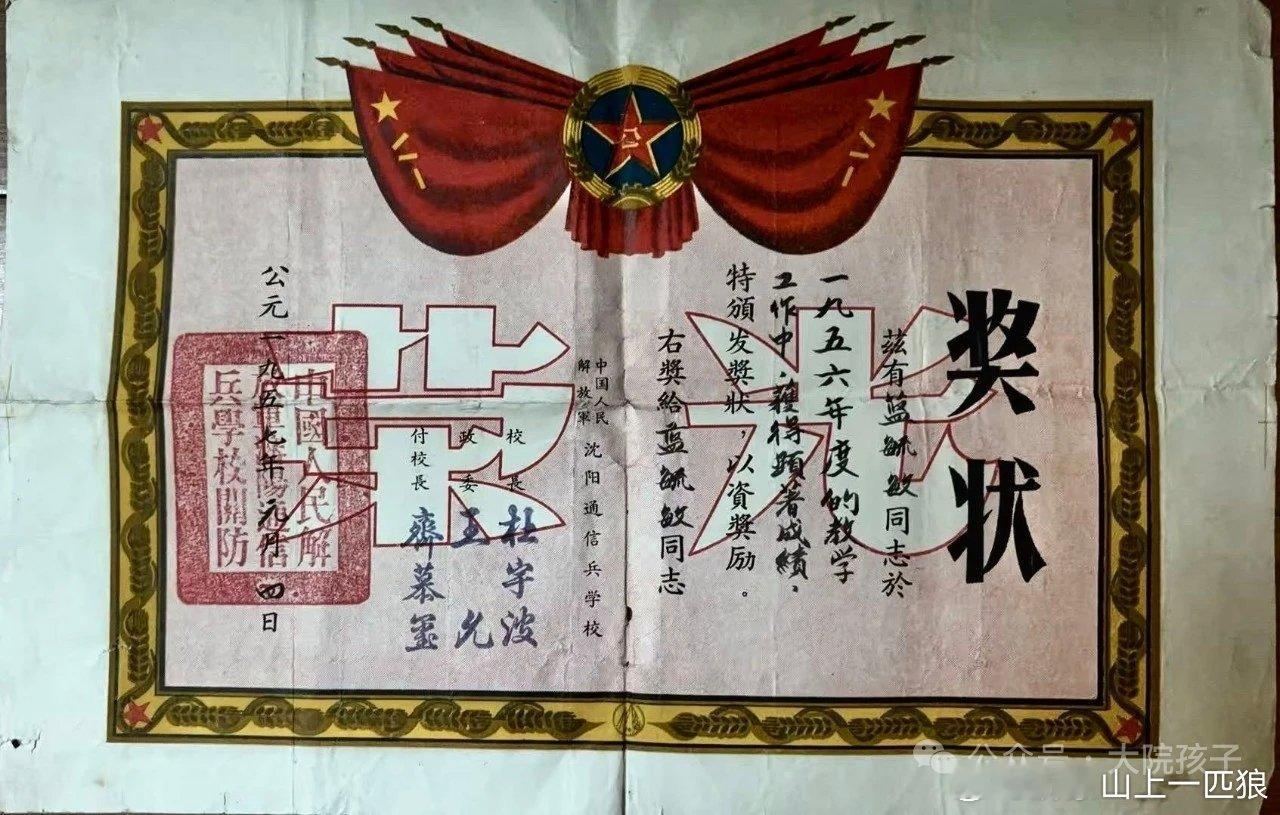 八一
八一
八一
奖状
光荣
茲有藍毓敏同志於
一九五六年度的教学
工作中，獲得顕著成績，
特頒发獎狀，以資獎励。
右獎給藍毓敏同志
中国人民
解放軍
沈阳通信兵学校
校長 杜宇波
政委 王允
付校長 齊慕
公元一九五七年元月四日
中國人民解
兵學校關防
公众号 · 大院孩子
山上一匹狼